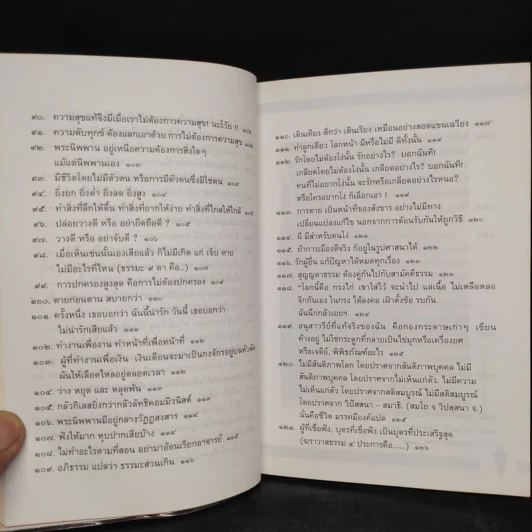 ๙๐. ความสุขแท้จึงมีเมื่อเราไม่ต้องการความสุข! นะโว้ย !!
๙๑. ความดับทุกข์ ต้องแลกเอาด้วย การไม่ต้องการความสุข
๙๒. พระนิพพาน อยู่เหนือความต้องการสิ่งใดๆ
แม้แต่นิพพานเอง ๑๐๓
๙๓. มีชีวิตโดยไม่มีตัวตน หรือการมีตัวตนซึ่งมิใช่ตน
๙๔. ยิ่งยก ยิ่งต่ำ ยิ่งลด ยิ่งสูง
๙๕. ทำสิ่งที่ลึกให้ตื้น ทำสิ่งที่ยากให้ง่าย ทำสิ่งที่ไกลให้ใกล้
๙๖. ปล่อยวางดี หรือ อย่ายึดถือดี ? ๑๐๕
๙๗. วางดี หรือ อย่าจับดี ? ๑๐๖
๙๘. เมื่อเห็นเช่นนั้นเองเสียแล้ว ก็ไม่มีเกิด แก่ เจ็บ ตาย
ไม่มีอะไรที่ไหน (ธรรมะ ๙ ตา คือ..)
๙๙. การปกครองสูงสุด คือการไม่ต้องปกครอง
๑๐๐. ตายก่อนตาย สบายกว่า
๑๐๑. ครั้งหนึ่ง เธอบอกว่า ฉันนี้น่ารัก วันนี้ เธอบอกว่า
ไม่น่ารักเสียแล้ว
๑๐๒. ทำงานเพื่องาน ทำหน้าที่เพื่อหน้าที่
๑๐๓. ผู้ที่ทำงานเพื่อเงิน เงินเดือนจะมาเป็นกงจักรอยู่บนหัวพัด
มันให้เลือดไหลอยู่ตลอดเวลา
๑๐๔. ว่าง หยุด และ หลุดพ้น
๑๐๕. กลัวกิเลสยิ่งกว่ากลัวลัทธิคอมมิวนิสต์ ๑๑๔
๑๐๖. พระนิพพานมีอยู่กลางวัฏฏสงสาร
๑๐๗. ฟังให้มาก หุบปากเสียบ้าง
๑๐๘. ไม่ทำอะไรตามที่สอน อย่ามาอ้อนเรียกอาจารย์
๑๐๙. อภิธรรม แปลว่า ธรรมะส่วนเกิน ๑๑๖
๑๑๐. เดินเดี่ยง ดีกว่า เดินเรียง เหมือนอย่างสอดแขนเฉวียง ๑๑๗
๑๑๑. ทำลูกเดียว โลกหน้า มีหรือไม่มี ดีทั้งนั้น ๑๑๘
๑๑๒. รักโดยไม่ต้องโง่นั้น รักอย่างไร? บอกฉันที!
เกลียดโดยไม่ต้องโง่นั้น เกลียดอย่างไร? บอกฉันที!
คนที่ไม่อยากโง่นั้น จะรักหรือเกลียดอย่างไรหนอ?
หรือใครอยากโง่ ก็เลือกเอา ! ๑๑๙
๑๑๓. การตาย เป็นหน้าที่ของสังขาร อย่างไม่มีทาง
เปลี่ยนแปลงแก้ไข นอกจากการต้อนรับกันให้ถูกวิธี
๑๑๔. ผี มีสำหรับคนโง่ ๑๒๑
๑๑๕. ถ้าการเมืองดีจริง ก็อยู่ในรูปศาสนาได้ ๑๒๒
๑๑๖. รักผู้อื่น แก้ปัญหาได้หมดทุกเรื่อง
๑๑๗. สุญญูตาธรรม ต้องคู่กันไปกับสามัคคีธรรม
๑๑๘. "โลกนี้คือ กรงไก่ เขาใส่ไว้ จะนำไป แล่เนื้อ ไม่เหลือหลอ
จิกกันเอง ในกรง ได้ลงคอ เฝ้าตั้งข้อ รบกัน
ฉันนึกกลัวเอยฯ ๑๒๔
๑๑๙. อนุสาวรีย์ที่แท้จริงของฉัน คือกองกระดาษเก่าๆ เขียน
ค้างอยู่ ไม่ใช่ซากที่กลายเป็นเจ้าไม่มุกหรือเครื่องยนต์
หรือเจดีย์, พิพิธภัณฑ์อะไร ๑๒๕
๑๒๐. ไม่มีสันติภาพโลก โดยปราศจากสันติภาพบุคคล ไม่มี
สันติภาพบุคคล โดยปราศจากความไม่เห็นแก่ตัว. ไม่มีความ
ไม่เห็นแก่ตัว, โดยปราศจากสติสมบูรณ์ ไม่มีสติสมบูรณ์
โดยปราศจาก วิปัสสนา - สมาธิ.
นั่นคือชีวิต มรรคมีองค์แปด
๑๒๑. ผู้ที่เชื่อฟัง, บุตรที่เชื่อฟัง เป็นบุตรที่ประเสริฐสุด
(ฆราวาสธรรม ๔ ประการคือ.....) ๑๒๖